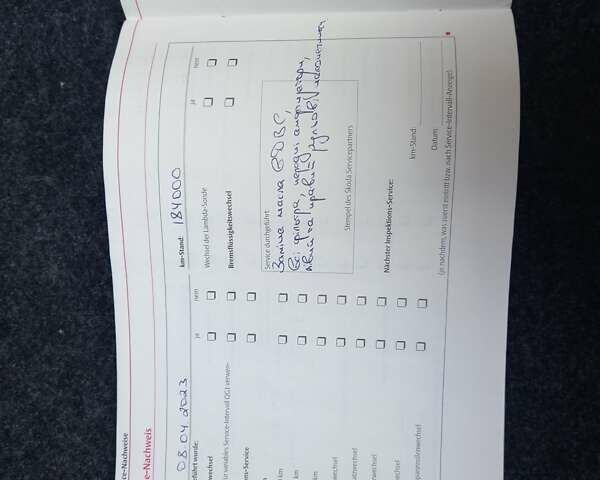 ce-Nachweise
e-Nachweis
08.04.2023
km-Stand: 184000
führt wurde:
ja nein
ja nein
wechsel
Wechsel der Lambda-Sonde
für variables Service-Intervall QG1 verwen-
Bremsflüssigkeitswechsel
ns-Service
Service durchgeführt:
Заміна масла ДВС,
всі фільтра, передні амортизатори,
ліва та права рульові
km
km
km
wechsel
Stempel des Skoda Servicepartners
wechsel
Nächster Inspektions-Service:
wechsel
km-Stand:
Datum:
(je nachdem, was zuerst eintritt bzw. nach Service-Intervall-Anzeige)